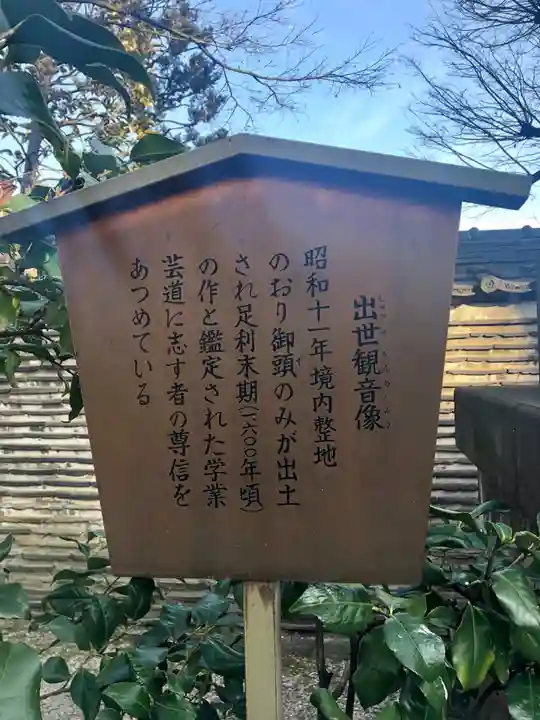 出世観音像
昭和十一年境内整地
のおり御頭のみが出土
され足利末期(一六〇〇年頃)
の作と鑑定された学業
芸道に志す者の尊信を
あつめている